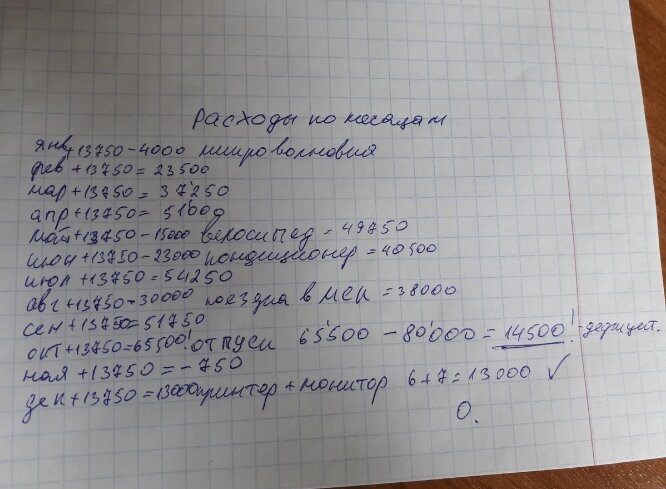 Расходы по месяцам
янв +13750 - 4000 микроволновка
фев +13750 = 23500
мар +13750 = 37'250
апр +13750 = 51000
май +13750 - 15000 велосипед = 49750
июн +13750 - 23000 кондиционер = 40500
июл +13750 = 54250
авг +13750 - 30000 поездка в = 38000
сен +13750 = 51750
окт +13750 = 65500! отпуск 65'500 - 80'000 = 14500! - дефицит.
ноя +13750 = - 750
дек +13750 = 13000 принтер + монитор 6+7 = 13000 ✓
0.